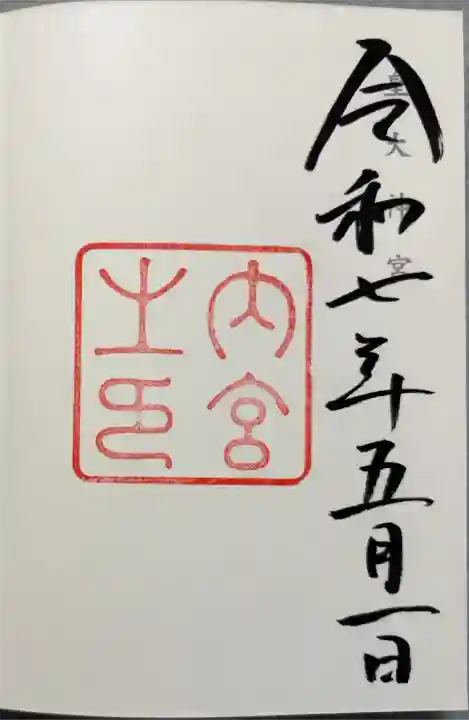 皇大神宮
令和七年五月一日
内宮
之印